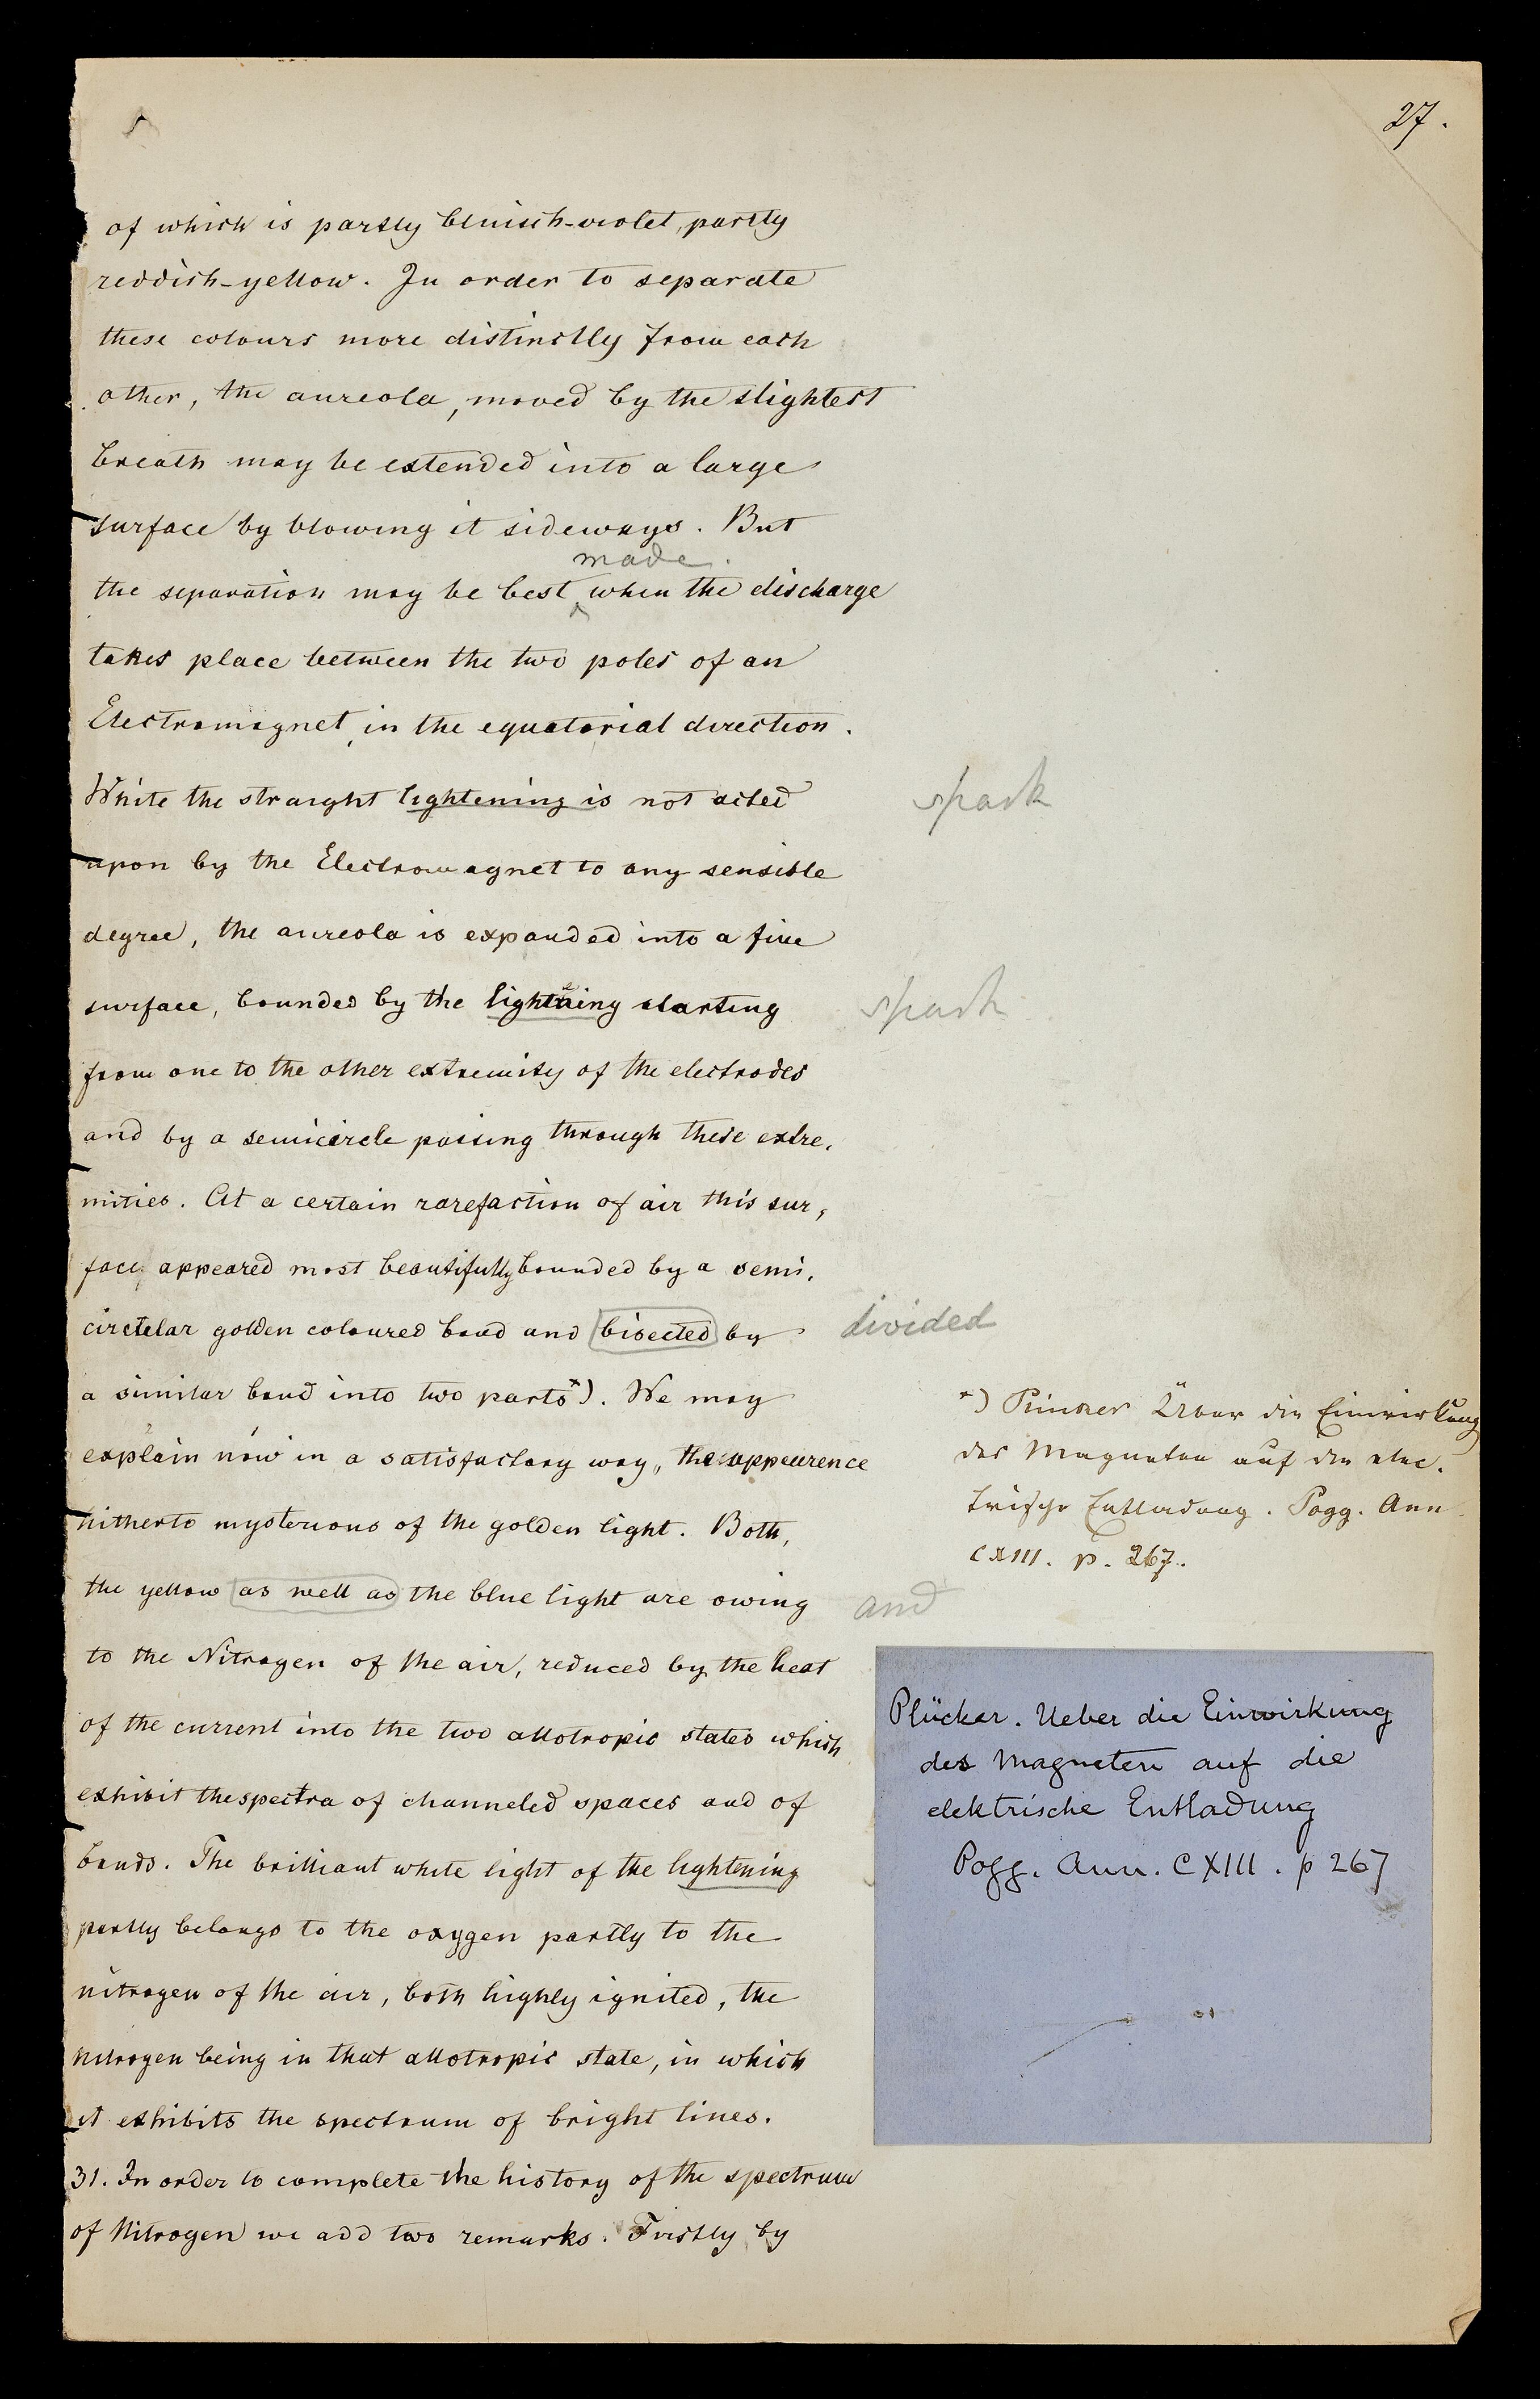 27.
of which is partly bluish-violet, partly
reddish-yellow. In order to separate
these colours more distinctly from each
other, the aureola, moved by the slightest
breath may be extended into a large
surface by blowing it sideways. But
made
the separation may be best when the discharge
takes place between the two poles of an
Electromagnet, in the equatorial direction.
While the straight lightening is not acted
spark
upon by the Electromagnet to any sensible
degree, the aureola is expanded into a fine
surface, bounded by the lightening starting
spark
from one to the other extremity of the electrodes
and by a semicircle passing through these extre-
mities. At a certain rarefaction of air this sur-
face appeared most beautifully bounded by a semi-
circular golden coloured band and bisected by
divided
a similar band into two parts*). We may
explain now in a satisfactory way, the appearence
hitherto mysterious of the golden light. Both,
the yellow as well as the blue light are owing
and
to the Nitrogen of the air, reduced by the heat
of the current into the two allotropic states which
exhibit the spectra of channeled spaces and of
bands. The brilliant white light of the lightening
partly belongs to the oxygen partly to the
nitrogen of the air, both highly ignited, the
Nitrogen being in that allotropic state, in which
it exhibits the spectrum of bright lines.
31. In order to complete the history of the spectrum
of Nitrogen we add two remarks. Firstly by
*) Plücker Über die Einwirkung
des Magneten auf die elec-
trische Entladung. Pogg. Ann.
CXIII. p. 267.
Plücker. Ueber die Einwirkung
des Magneten auf die
elektrische Entladung
Pogg. Ann. CXIII. p 267